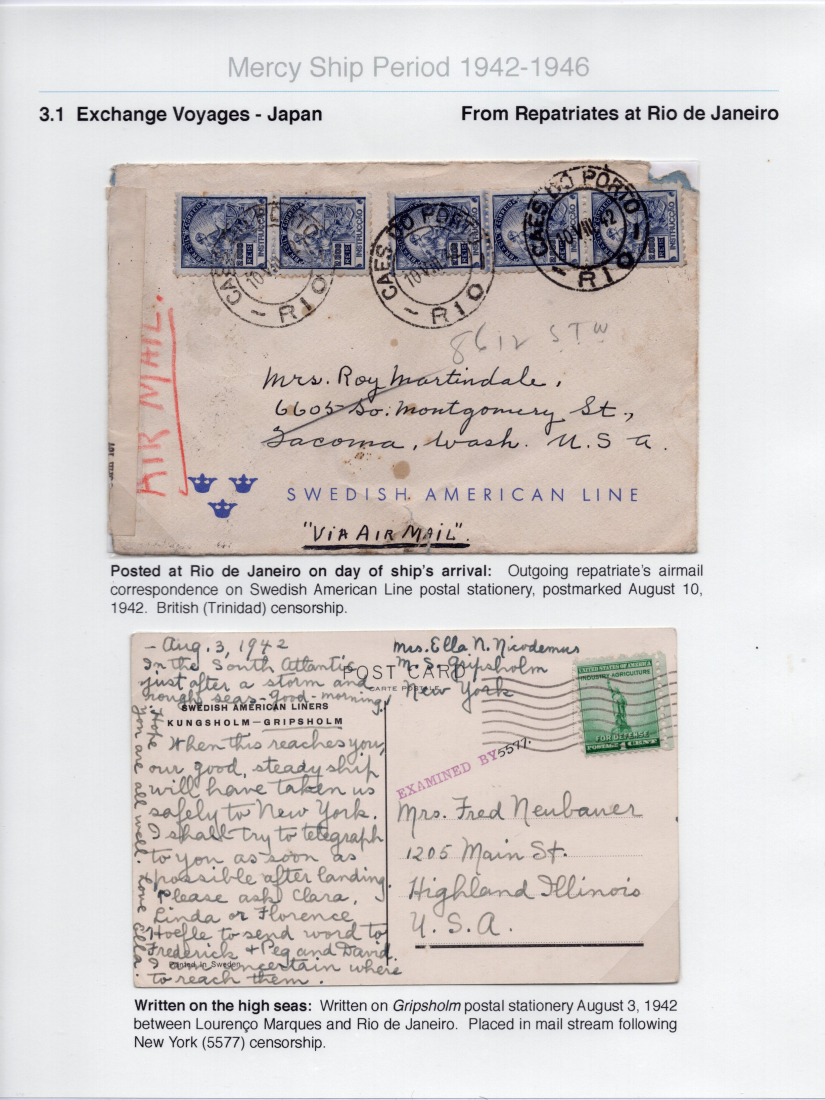 Mercy Ship Period 1942-1946
3.1 Exchange Voyages - Japan
From Repatriates at Rio de Janeiro
CAES DO PORTO
10 VIII 42
- RIO -
CAES DO PORTO
10 VIII 42
- RIO -
CAES DO PORTO
10 VIII 42
- RIO -
INSTRUCÇÃO
INSTRUCÇÃO
INSTRUCÇÃO
INSTRUCÇÃO
INSTRUCÇÃO
AIR MAIL.
8612 STW
Mrs. Roy Martindale,
6605 So. Montgomery St.,
Tacoma, Wash. U.S.A.
SWEDISH AMERICAN LINE
"VIA AIR MAIL".
Posted at Rio de Janeiro on day of ship's arrival: Outgoing repatriate's airmail
correspondence on Swedish American Line postal stationery, postmarked August 10,
1942. British (Trinidad) censorship.
- Aug. 3, 1942
In the South Atlantic
just after a storm and
rough seas - good - morning!
POST CARD
CARTE POSTALE
SWEDISH AMERICAN LINERS
KUNGSHOLM — GRIPSHOLM
When this reaches you,
our good, steady ship
will have taken us
safely to New York.
I shall try to telegraph
to you as soon as
possible after landing.
Please ask Clara,
Linda or Florence
Hoefle to send word to
Frederick + Peg and David.
Printed in Sweden
I am uncertain where
to reach them.
Hope you are all well. Love Ella.
Mrs. Ella N. Nicodemus
M.S. Gripsholm
New York
UNITED STATES OF AMERICA
INDUSTRY AGRICULTURE
FOR DEFENSE
POSTAGE 1 CENT
EXAMINED BY 5577.
Mrs. Fred Neubauer
1205 Main St.
Highland Illinois
U.S.A.
Written on the high seas: Written on Gripsholm postal stationery August 3, 1942
between Lourenço Marques and Rio de Janeiro. Placed in mail stream following
New York (5577) censorship.